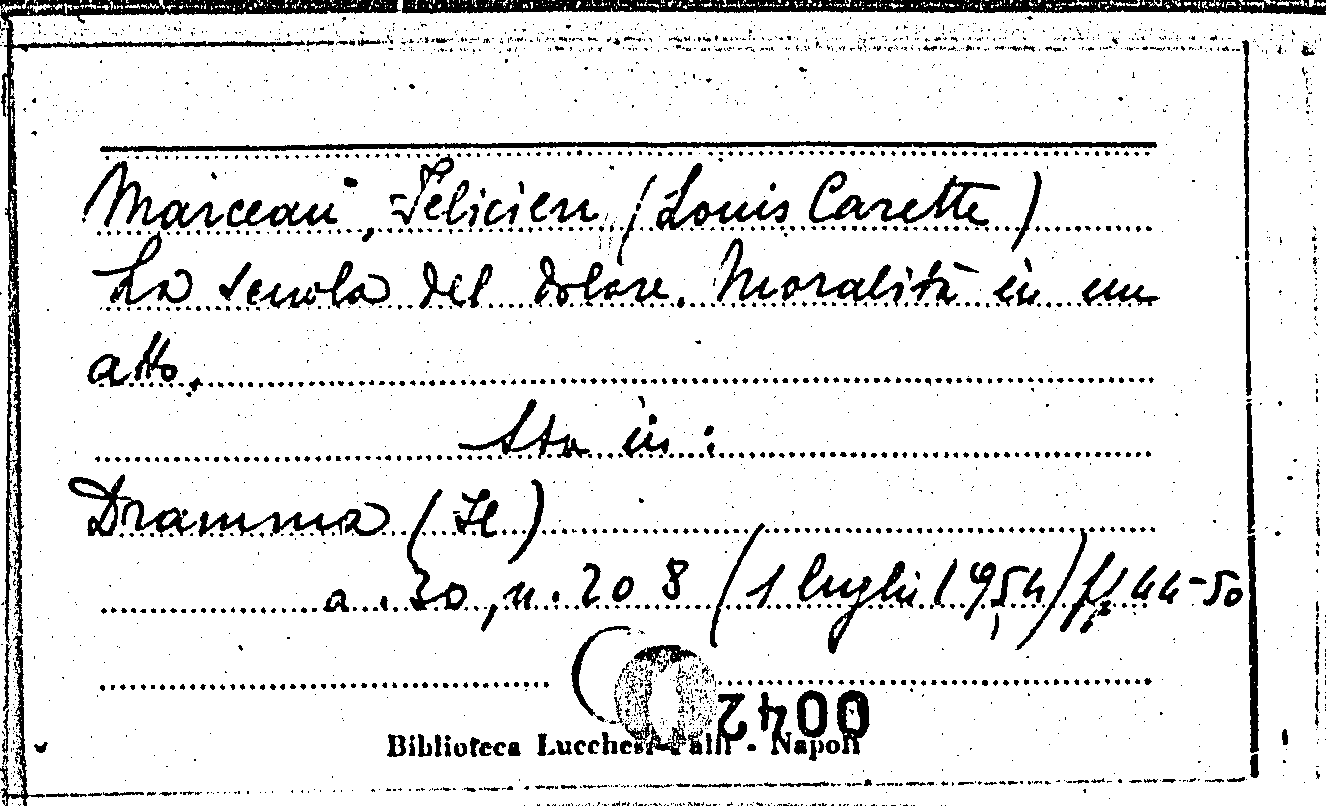 Marceau, Felicien (Louis Carette)
La scuola del dolore. Moralità in un
atto.
Sta in:
Dramma (Il)
a. 30, n. 208 (1 luglio 1954) ff. 44-50
0042
Biblioteca Lucchesi-Palli - Napoli